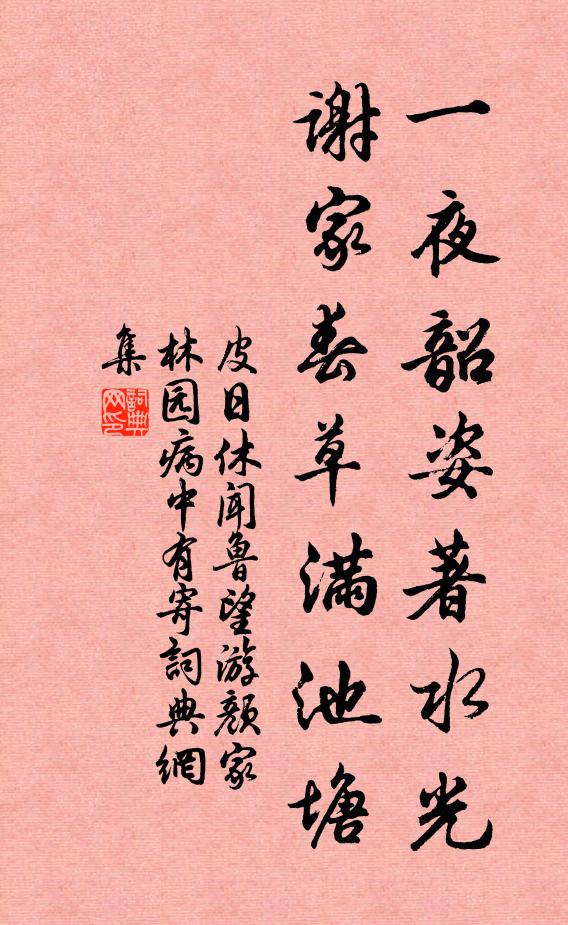 一夜韶姿著水光
谢家春草满池塘
皮日休闻鲁望游颜家
林园病中有寄詞典網
集
詞典
网印